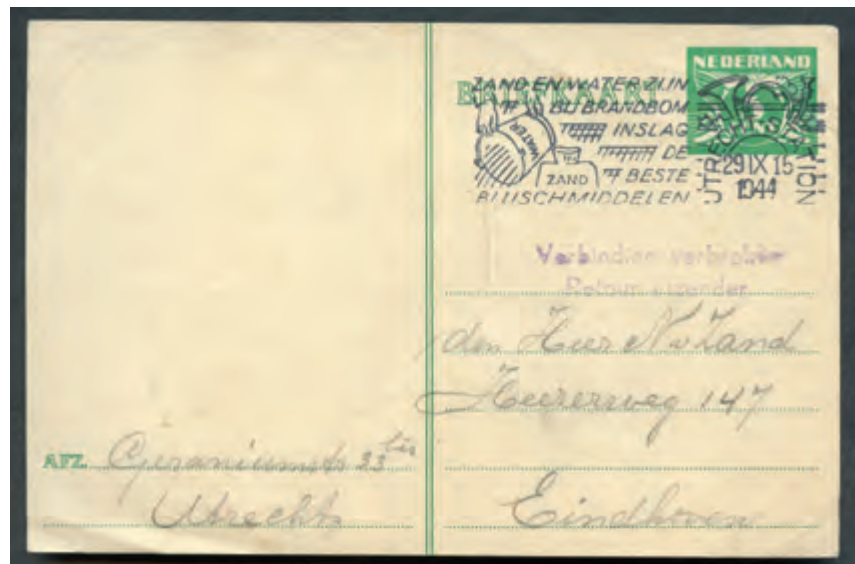 NEDERLAND
BRIEFKAART
ZAND EN WATER ZIJN
BIJ BRANDBOM
INSLAG
DE
BESTE
BLUSCHMIDDELEN
WATER
ZAND
UTRECHT-STATION
29 IX 15
1944
Verbinding verbroken
Retour afzender
den Heer N v Zand
147
AFZ. Geraniumstr 33 bis
Utrecht
Eindhoven